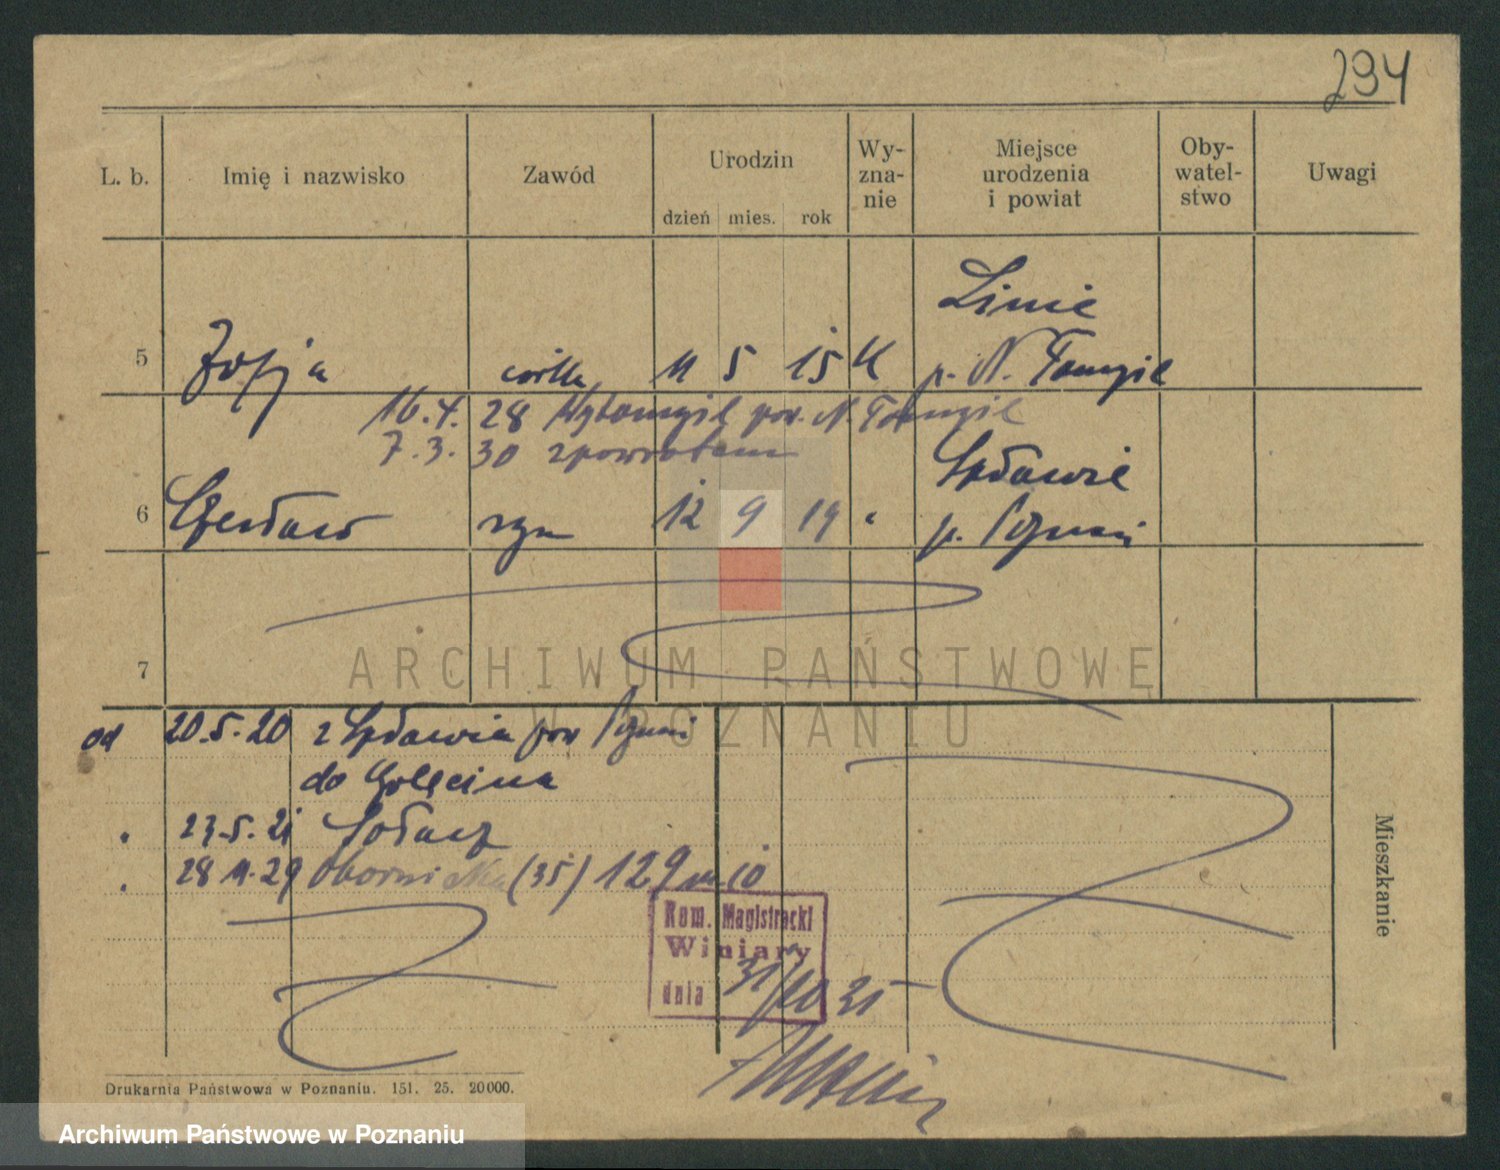 294
L. b. Imię i nazwisko Zawód Urodzin dzień mies. rok Wy-zna-nie Miejsce urodzenia i powiat Oby-watel-stwo Uwagi
Linie
5 Zofja córka 11 5 15 K p. N. Tomyśl
16.4.28 Wytomyśl pow. N. Tomyśl
7.3.30 zpowrotem
Spławie
6 Czesław syn 12 9 19 " p. Poznań
7
ARCHIWUM PAŃSTWOWE
W POZNANIU
od 20.5.20 z Spławia pow Poznań
do Golęcina
" 23.5.21 Sołacz
" 28 11.29 Obornicka (35) 129 m 10
Mieszkanie
Kom. Magistracki
Winiary
dnia 31/10 31
Drukarnia Państwowa w Poznaniu. 151. 25. 20000.
Archiwum Państwowe w Poznaniu